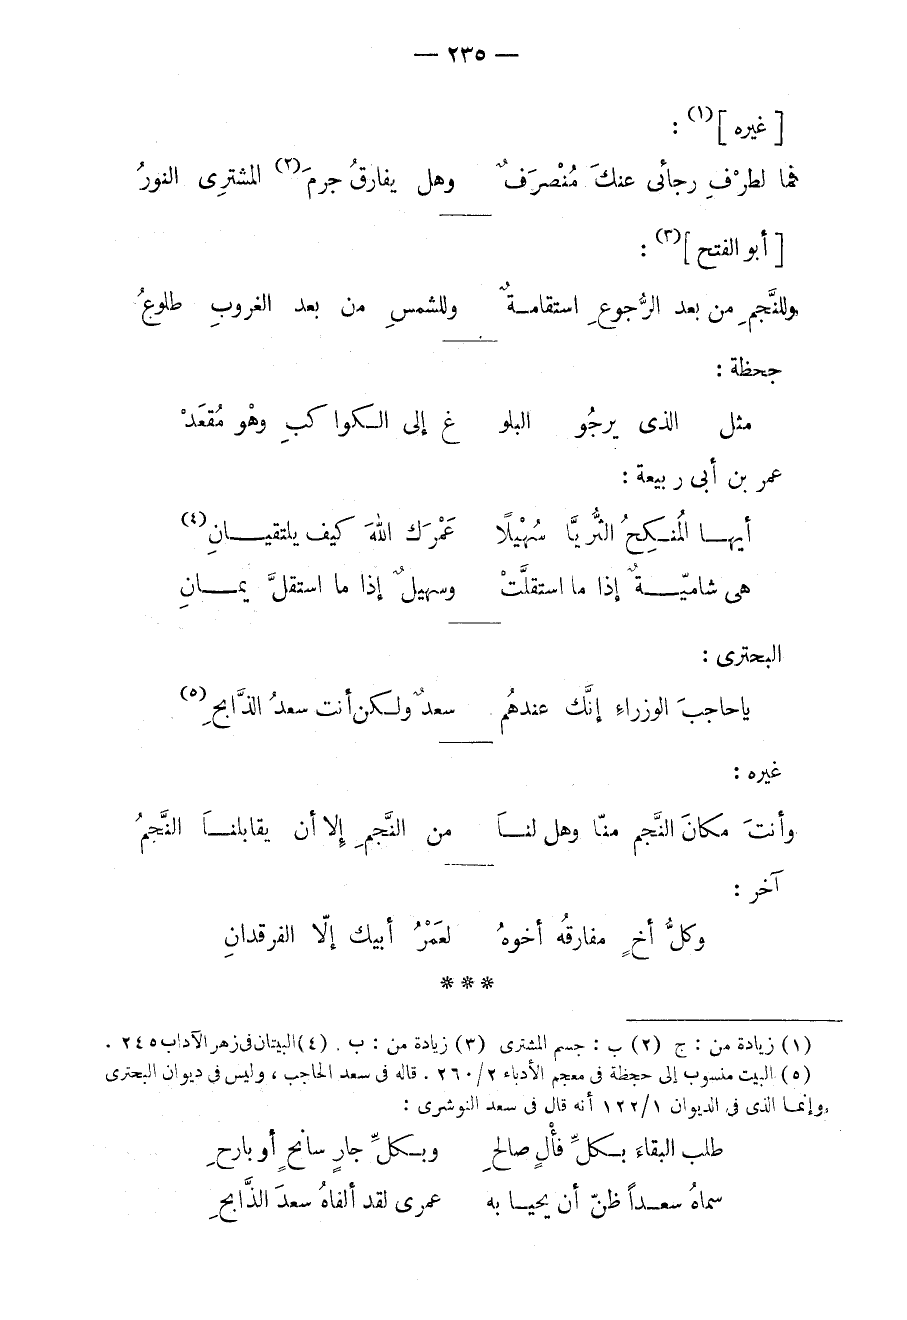 — ٢٣٥ —
[ غيره ](١) :
فما لطرْفِ رجائى عنكَ مُنْصرَفٌ وهل يفارقُ جرمَ(٢) المشترِى النورُ
[ أبو الفتح ](٣) :
وللنَّجمِ من بعد الرُّجوعِ استقامةٌ وللشمسِ من بعد الغروبِ طلوعُ
جحظة :
مثل الذى يرجُو البلو غ إلى الكواكبِ وهْو مُقعَدْ
عمر بن أبى ربيعة :
أيها المُنكِحُ الثُّريَّا سُهَيْلًا عَمْرَك اللهَ كيف يلتقيانِ(٤)
هى شاميّةٌ إذا ما استقلَّتْ وسهيلٌ إذا ما استقلَّ يمانِ
البحترى :
ياحاجبَ الوزراءِ إنَّك عندهُم سعدٌ ولكن أنت سعدُ الذَّابحِ(٥)
غيره :
وأنتَ مكانَ النَّجم منّا وهل لنا من النَّجمِ إلا أن يقابلنا النَّجمُ
آخر :
وكلُّ أخٍ مفارقُه أخوهُ لعَمْرُ أبيك إلّا الفرقدانِ
***
(١) زيادة من : ج (٢) ب : جسم المشترى (٣) زيادة من : ب . (٤) البيتان فى زهر الآداب ٢٤٥ .
(٥) البيت منسوب إلى حجظة فى معجم الأدباء ٢/٢٦٠ . قاله فى سعد الحاجب ، وليس فى ديوان البحترى
وإنما الذى فى الديوان ١/١٢٢ أنه قال فى سعد النوشرى :
طلب البقاءَ بكلِّ فألٍ صالحِ وبكلِّ جارٍ سانحٍ أو بارحِ
سماهُ سعداً ظنّ أن يحيا به عمرى لقد ألفاهُ سعدَ الذَّابحِ